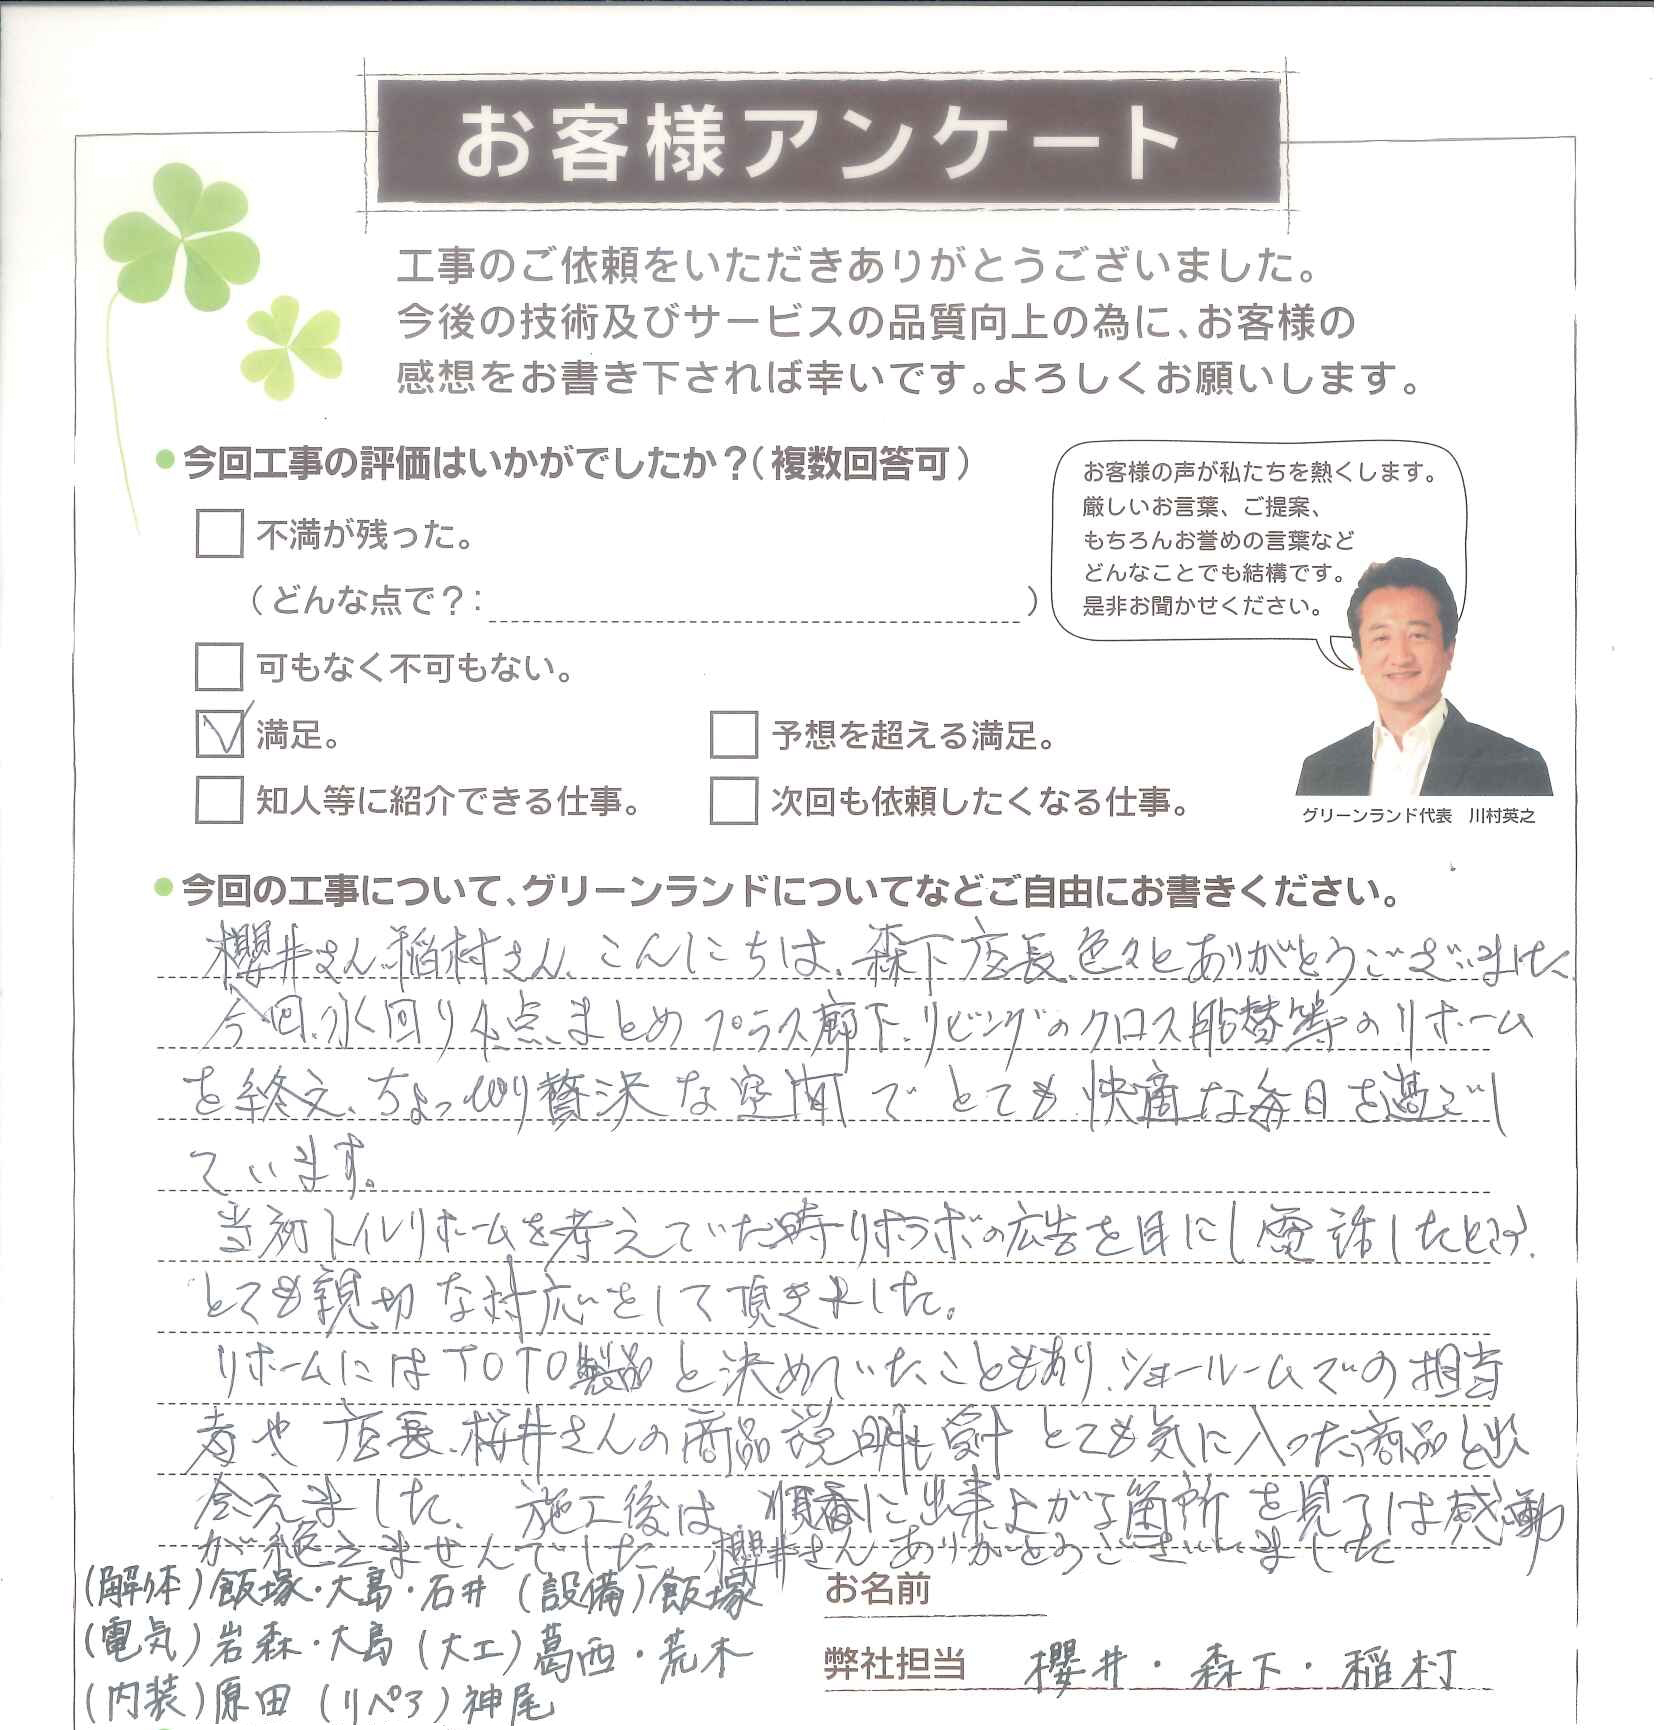 お客様アンケート
工事のご依頼をいただきありがとうございました。
今後の技術及びサービスの品質向上の為に、お客様の
感想をお書き下されば幸いです。よろしくお願いします。
今回工事の評価はいかがでしたか？（複数回答可）
不満が残った。
（どんな点で？：　　　）
可もなく不可もない。
満足。
予想を超える満足。
知人等に紹介できる仕事。
次回も依頼したくなる仕事。
お客様の声が私たちを熱くします。
厳しいお言葉、ご提案、
もちろんお誉めの言葉など
どんなことでも結構です。
是非お聞かせください。
グリーンランド代表　川村英之
今回の工事について、グリーンランドについてなどご自由にお書きください。
櫻井さん、稲村さん、こんにちは、森下店長、色々とありがとうございました。
今回、水回り4点まとめプラス廊下、リビングのクロス貼替等のリホーム
を終え、ちょっぴり贅沢な空間でとても快適な毎日を過ごし
ています。
当初トイレリホームを考えていた時リボラボの広告を目にし電話したところ、
とても親切な対応をして頂きました。
リホームにはTOTO製品と決めていたこともあり、ショールームでの担当
者や店長、桜井さんの商品説明も受けとても気に入った商品と出
会えました。施工後は、順番に出来上がる箇所を見ては感動
が絶えませんでした。櫻井さんありがとうございました
（解体）飯塚・大島・石井（設備）飯塚
（電気）岩森・大島（大工）葛西・荒木
（内装）原田（リペア）神尾
お名前
弊社担当　櫻井・森下・稲村